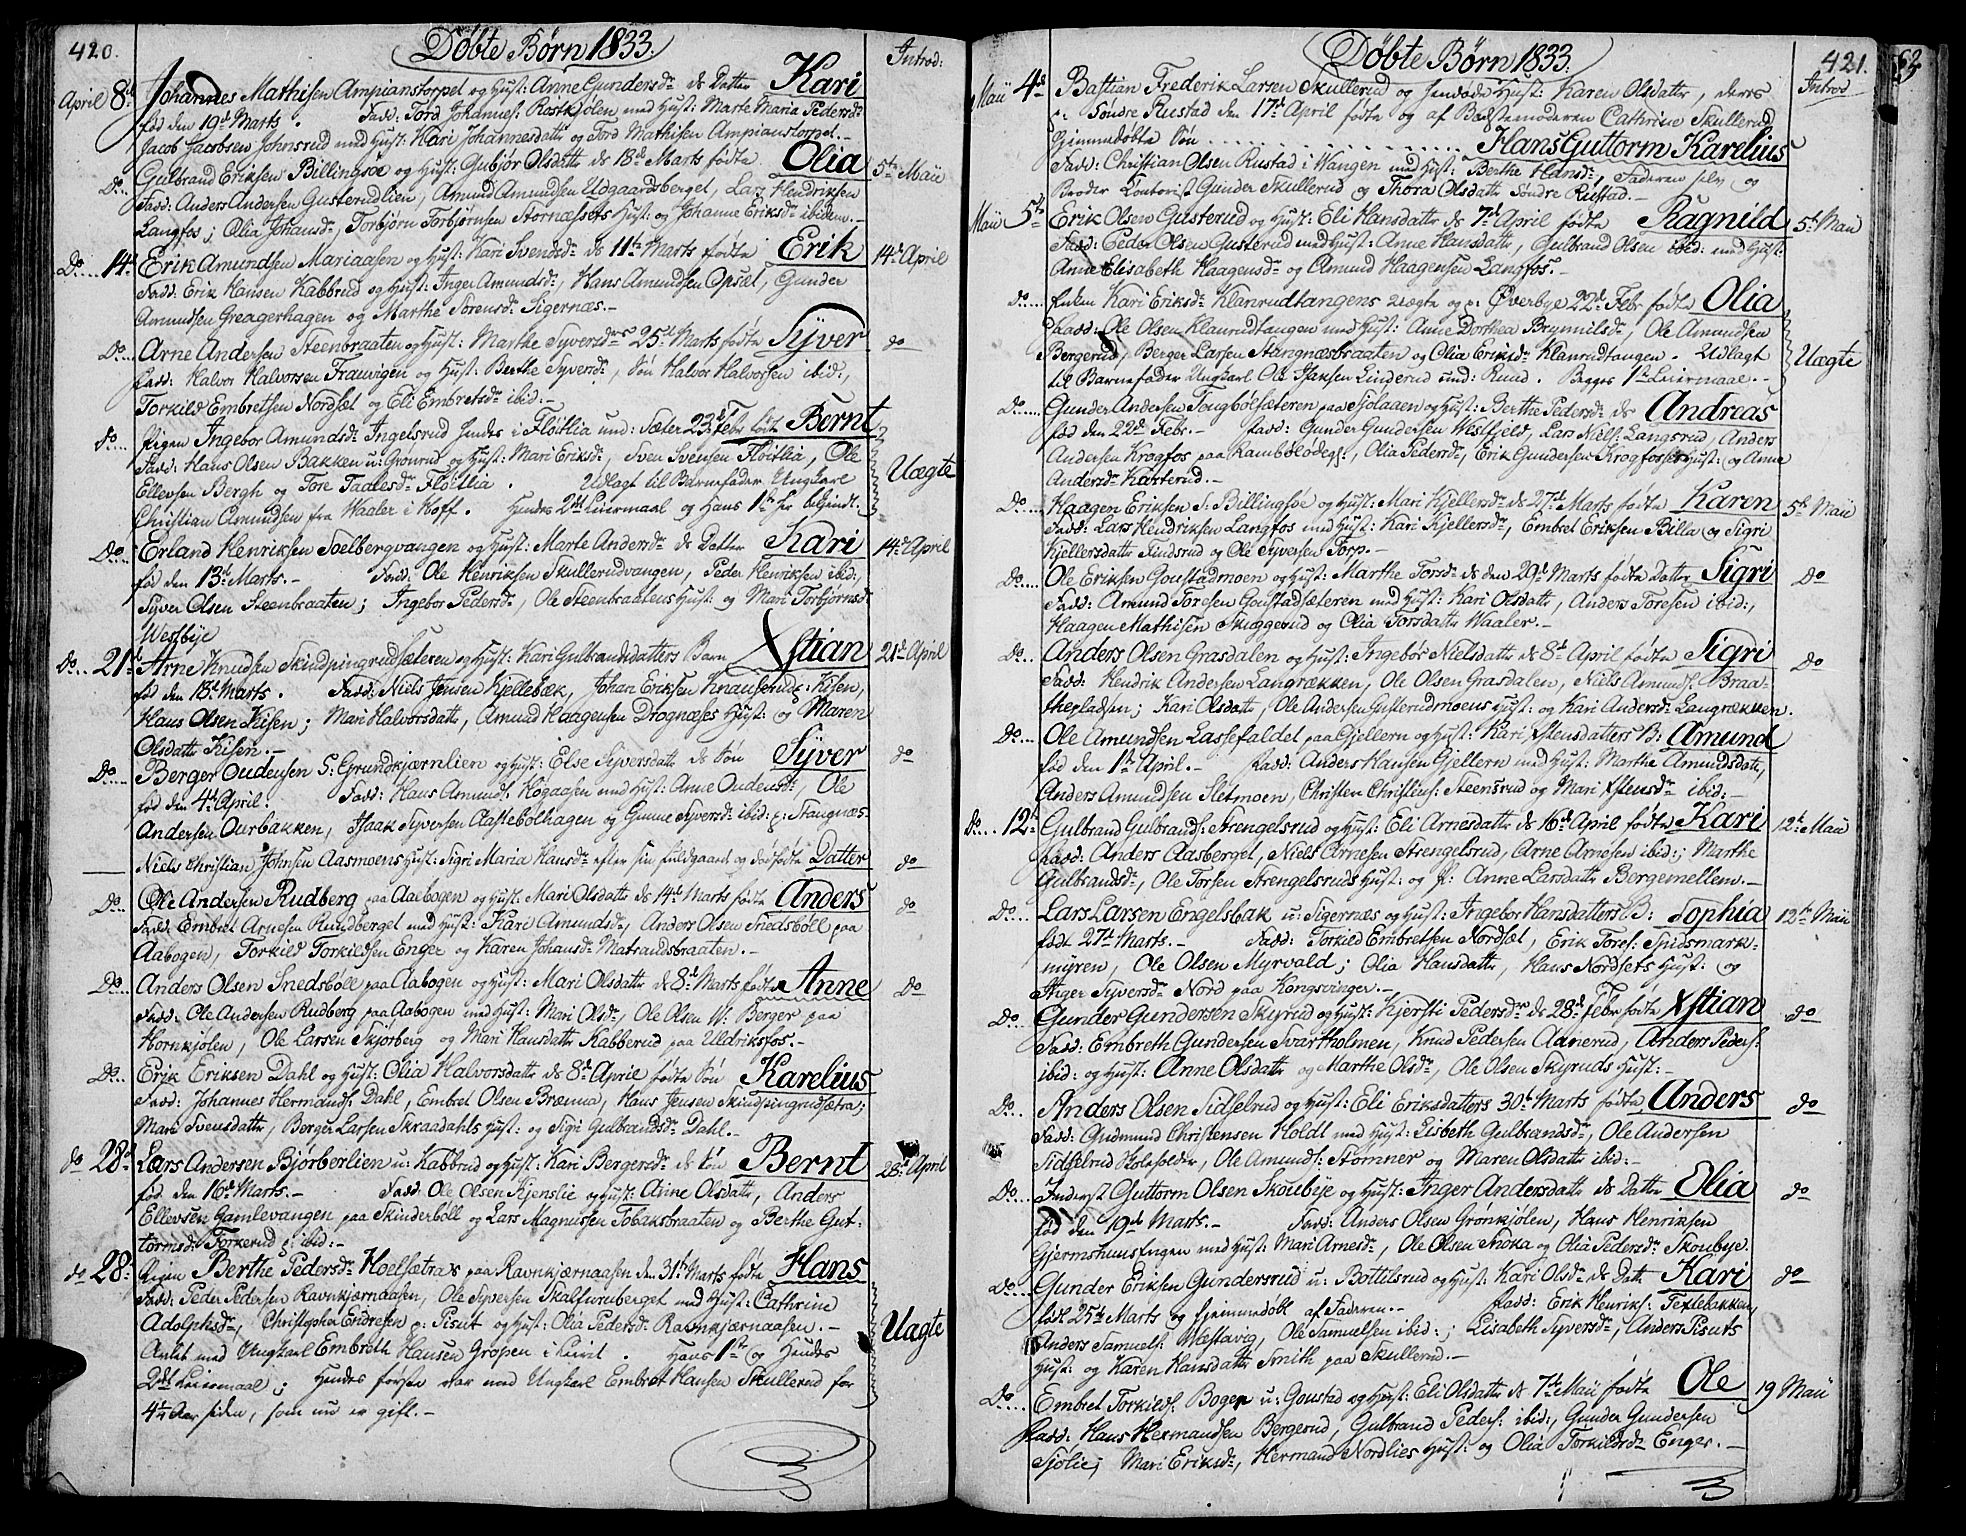 420.
Döbte Børn 1833.
Introd:
April 8de Johannes Mathisen Ampianstorpet og Hust: Anne Gundersdr ds Datter Kari
fød den 19d Marts. Fadd: Tord Johannes: Rostkjølen med Hust: Marte Maria Pedersdr
Jacob Jacobsen Johnsrud med Hust: Kari Johannesdatter og Tord Mathisen Ampianstorpet.-
Do. Gulbrand Eriksen Billingsøe og Hust: Gubjør Olsdatter ds 18d Marts fødte Olia 5te Maii
Fadd: Anders Andersen Gusterudlien, Amund Amundsen Udgaardsberget, Lars Hendriksen
Langfos; Olia Johansdr, Torbjørn Torbjørnsen Stornæssets Hust: og Johanne Eriksdr ibidem.-
Do... 14 Erik Amundsen Mariaasen og Hust: Kari Svendsdr ds 11te Marts fødte Erik 14d April
Fadd: Erik Hansen Kabbrud og Hust: Inger Amundsdr, Hans Amundsen Opset, Gunder
Amundsen Greagerhagen og Marthe Sorensdr Sigernæs.-
Do... Arne Andersen Steenbraaten og Hust: Marthe Syversdrs 25d Marts fødte Syver do
Fadd: Halvor Halvorsen Frauvigen og Hust: Berthe Syversdr, Søn Halvor Halvorsen ibid:,
Torkild Embretsen Nordsæt og Eli Embretsdr ibid:-
Do. Pigen Ingebor Amundsdr Ingelsrud hendes i Fløitlia und: Sæter 23d Febr født Bernt
Fadd: Hans Olsen Bakken u: Grønrud og Hust: Mari Eriksdr, Sven Svensen Fløitlia, Ole Uægte
Ellevsen Bergh og Tore Taalesdr Fløitlia. Udlagt til Barnefader Ungkarl
Christian Amundsen fra Waaler i Soff. Hendes 2det Leiermaal og Hans 1te
Do... Erland Henriksen Soelbergvangen og Hust: Marte Andersdr ds Datter Kari 14d April
fød den 13d Marts.- Fadd: Ole Henriksen Skullerudvangen, Peder Henriksen ibid:,
Syver Olsen Steenbraaten; Ingebor Pedersdr, Ole Steenbraatens Hust: og Mari Torbjørnsdr
Westbye
Do... 21d Arne Knudsen Skindpingrudsæteren og Hust: Kari Gulbrandsdatters Barn Xstian 21d April
fød den 18d Marts. Fadd: Niels Jensen Kjellebæk, Johan Eriksen Knauserud p: Kisen,
Hans Olsen Kisen; Mari Halvorsdatter, Amund Haagensen Drognæses Hust: og Maren
Olsdatter Kisen.-
Do... Berger Oudensen S: Grundkjærnlien og Hust: Else Syversdatter ds Søn Syver do
fød den 4d April. Fadd: Hans Amunds: Høgaasen med Hust: Anne Oudensdr, Ole
Andersen Ourbakken, Isaak Syversen Aastebolhagen og Gunne Syversdr ibid: p: Stangnæs-
Niels Christian Johnsen Aasmoens Hust: Sigri Maria Hansdr efter sin fuldgaarne og dødfødte Datter do
Do... Ole Andersen Rudberg paa Aabogen og Hust: Mari Olsdatter ds 14d Marts fødte Anders do
Fadd: Embret Arnesen Rundberget med Hust: Kari Amundsdr, Anders Olsen Snedsböll paa
Aabogen, Torkild Torkildsen Enger og Karen Johansdr Matrandsbraaten.-
Do... Anders Olsen Snedsböll paa Aabogen og Hust: Mari Olsdatter ds 8d Marts fødte Anne Do
Fadd: Ole Andersen Rudberg paa Aabogen med Hust: Mari Olsdr, Ole Olsen W: Berger paa
Hornkjølen, Ole Larsen Skjørberg og Mari Hansdatter Kabberud paa Uldriksfos.-
Do... Erik Eriksen Dahl og Hust: Olia Halvorsdatter ds 8d April fødte Søn Karelius
Fadd: Johannes Hermands: Dahl, Embret Olsen Brænna, Hans Jensen Skindpingrudsætra;
Mari Svensdatter, Berger Larsen Skraadahls Hust: og Sigri Gulbrandsdr Dahl.-
do 28d Lars Andersen Bjørberlien u: Kabbrud og Hust: Kari Bergersdr ds Søn Bernt 28d April
fød den 16d Marts.- Fadd: Ole Olsen Kjenslie og Hust: Anne Olsdatter, Anders
Ellevsen Gamlevangen paa Skinderböll og Lars Magnussen Tobaksbraaten og Berthe Gut-
tormsdr Torkerud p: ibid:-
do 28. Pigen Berthe Pedersdr Hoelsætras paa Ravnkjærnaasen den 31te Marts fødte Hans
Fadd: Peder Pedersen Ravnkjærnaasen, Ole Syversen Skalfuruberget med Hust: Cathrine
Adolphsdr, Christopher Endresen p: Pisut og Hust: Olia Pedersdr Ravnkjærnaasen.- Uægte
Avlet med Ungkarl Embreth Hansen Gropen i Lunt. Hans 1ste og Hendes
2det Leiermaal; Hendes første var med Ungkarl Embret Hansen Skullerud for
4½ Aar siden, som nu er gift.-
421.
Döbte Børn 1833.
Introd
Maii 4d Bastian Frederik Larsen Skullerud og hendøde Hust: Karen Olsdatter, deres
p: Søndre Rustad den 17d April fødte og af Bedstemoderen Cathrine Skullerud
hjemmedøbte Søn Hans Guttorm Karelius
Fadd: Christian Olsen Rustad i Wangen med Hust: Berthe Hansdr, Faderen selv og
Broder Contorist Gunder Skullerud og Thora Olsdatter Søndre Rustad.-
Maii 5te Erik Olsen Gusterud og Hust: Eli Hansdatter ds 7d April fødte Ragnild 5te Maii
Fadd: Peder Olsen Gusterud med Hust: Anne Hansdatter, Gulbrand Olsen ibid: med Hust:
Anne Elisabeth Haagensdr og Amund Haagensen Langfos.-
do.... Enken Kari Eriksdr Klanrudtangens uægte og p: Øverbye 22d Febr fødte Olia
Fadd: Ole Olsen Klanrudtangen med Hust: Anne Dorthea Brynnilsdr, Ole Amundsen
Bergerud, Berger Larsen Stangnæsbraaten og Olia Eriksdr Klanrudtangen. Udlagt Uægte
til Barnefader Ungkarl Ole Isaksen Linderud und: Ruud. Begges 1te Leiermaal.-
do..... Gunder Andersen Tougbölsæteren paa Sjølaaen og Hust: Berthe Pedersdr ds Andreas
fød den 22d Febr.- Fadd: Gunder Gundersen Westfjeld, Lars Niels: Langsrud, Anders
Andersen Krogfos paa Ramböl, Olia Pedersdr, Erik Gundersen Krogfosses Hust: og Anne
Andersdr Karterud.-
Do... Haagen Eriksen S: Billingsøe og Hust: Mari Kjellersdr ds 27d Marts fødte Karen 5te Maii
Fadd: Lars Hendriksen Langfos med Hust: Kari Kjellersdr, Embret Eriksen Billa og Sigri
Kjellersdatter Findsrud og Ole Syversen Torp.-
Do.... Ole Eriksen Goustadmoen og Hust: Marthe Torsdr ds den 29d Marts fødte Datter Sigri Do
Fadd: Amund Toresen Goustadsæteren med Hust: Kari Olsdatter, Anders Toresen ibid:,
Haagen Mathisen Skuggerud og Olia Torsdatter Waaler.-
Do... Anders Olsen Grasdalen og Hust: Ingebor Nielsdatter ds 8d April fødte Sigri Do
Fadd: Hendrik Andersen Langrækken, Ole Olsen Grasdalen, Niels Amunds: Braa-
thepladsen; Kari Olsdatter, Ole Andersen Gusterudmoens Hust: og Kari Andersdr Langrækken.
Do... Ole Amundsen Lassefaldet paa Gjellern og Hust: Kari Xstensdatters B: Amund
fød den 1te April.- Fadd: Anders Hansen Gjellern med Hust: Marthe Amundsdatter,
Anders Amundsen Sletmoen, Christen Christens: Steensrud og Mari Xstensdr ibid:-
do... 12te Gulbrand Gulbrands: Strengelsrud og Hust: Eli Arnesdatter ds 16d April fødte Kari 12te Maii
Fadd: Anders Aasberget, Niels Arnesen Strengelsrud, Arne Arnesen ibid:; Marthe
Gulbrandsdr, Ole Torsen Strengelsruds Hust: og P: Anne Larsdatter Borgemellem.-
Do... Lars Larsen Engelsbak u: Sigernæs og Hust: Ingebor Hansdatters B: Sophia 12te Maii
født 27d Marts.- Fadd: Torkild Embretsen Nordsæt, Erik Tores: Spidsmark-
myren, Ole Olsen Myrvald; Olia Hansdatter, Hans Nordsets Hust: og
Inger Syversdr Nord paa Kongsvinger.-
Do... Gunder Gundersen Skyrud og Hust: Kjersti Pedersdr ds 28d Febr fødte Xstian do
Fadd: Embreth Gundersen Svartholmen, Knud Pedersen Aanerud, Anders Peders:
ibid: og Hust: Anne Olsdatter og Marthe Olsdr, Ole Olsen Skyruds Hust:-
Do.. Anders Olsen Sidselrud og Hust: Eli Eriksdatters 30d Marts fødte Anders do
Fadd: Gudmund Christensen Holdt med Hust: Lisbeth Gulbrandsdr, Ole Andersen
Sidselrud Skoleholder, Ole Amunds: Stomner og Maren Olsdatter ibid:-
Do... Inderst Guttorm Olsen Skoubye og Hust: Inger Andersdatter ds Datter Olia do
fød den 19d Marts.- Fadd: Anders Olsen Grønkjølen, Hans Henriksen
Gjermshuusengen med Hust: Mari Arnesdr, Ole Olsen Stoka og Olia Pedersdr Skoubye.
Do... Gunder Eriksen Gundersrud u: Bottilsrud og Hust: Kari Olsdr ds Datt: Kari do
født 25te Marts og hjemmedøbt af Faderen.- Fadd: Erik Henriks: Textebakken,
Anders Samuels: Wæstavig, Ole Samuelsen ibid:; Lisabeth Syversdr, Anders Pisuts
Hust: og Karen Hansdatter Smith paa Skullerud.-
Do.... Embret Torkilds: Boger u: Goustad og Hust: Eli Olsdatter ds 7te Maii fødte Ole 19 Maii
Fadd: Hans Hermandsen Bergerud, Gulbrand Peders: ibid:, Gunder Gundersen
Sjølie; Mari Eriksdr, Hermand Nordlies Hust: og Olia Torkildsdr Enger.-